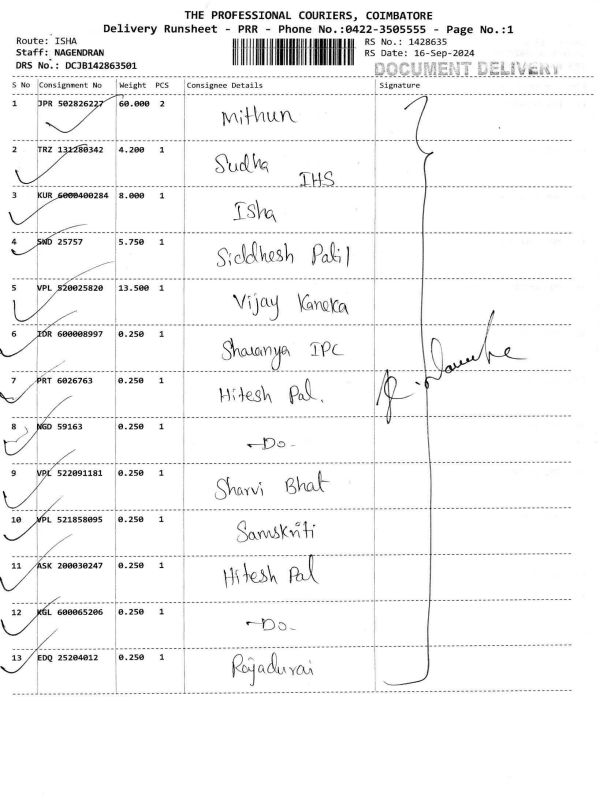 THE PROFESSIONAL COURIERS, COIMBATORE
Delivery Runsheet - PRR - Phone No.:0422-3505555 - Page No.:1
Route: ISHA RS No.: 1428635
Staff: NAGENDRAN RS Date: 16-Sep-2024
DRS No.: DCJB142863501 DOCUMENT DELIVERY
S No Consignment No Weight PCS Consignee Details Signature
1 JPR 502826227 60.000 2 Mithun
2 TRZ 131280342 4.200 1 Sudha IHS
3 KUR 6000400284 8.000 1 Isha
4 SND 25757 5.750 1 Siddhesh Patil
5 VPL 520025820 13.500 1 Vijay Kaneka
6 IDR 600008997 0.250 1 Sharanya IPC
7 PRT 6026763 0.250 1 Hitesh Pal.
8 NGD 59163 0.250 1 -Do-
9 VPL 522091181 0.250 1 Sharvi Bhat
10 VPL 521858095 0.250 1 Samskriti
11 ASK 200030247 0.250 1 Hitesh Pal
12 KGL 600065206 0.250 1 -Do-
13 EDQ 25204012 0.250 1 Rajadurai